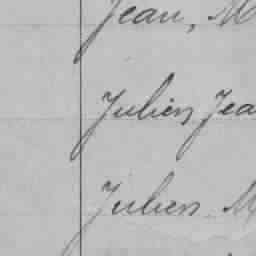 Jean, M
Julien Jea
Julien M